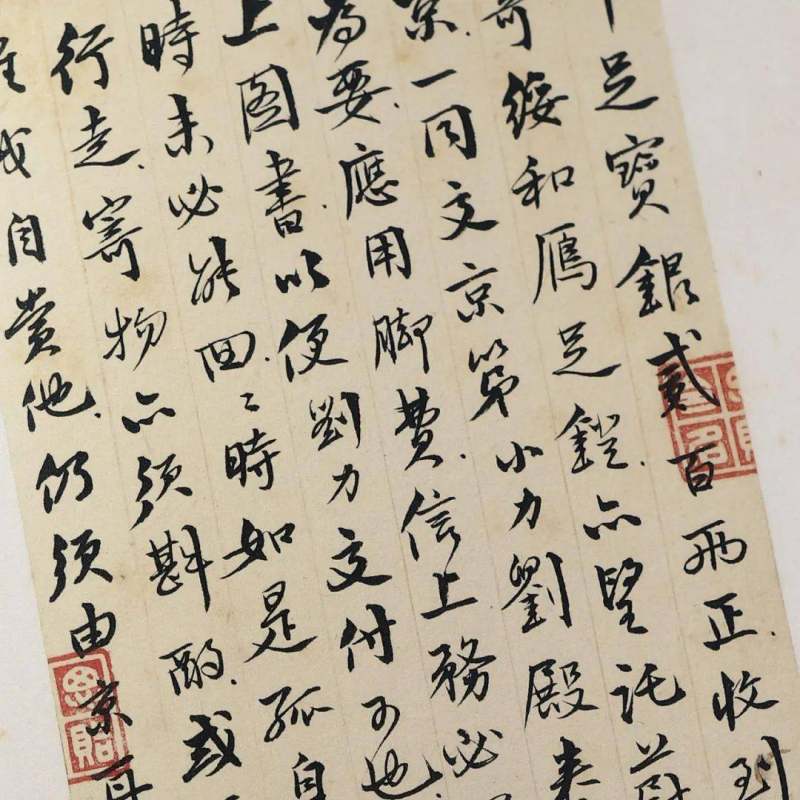 足寶銀貳百兩正收到
綏和鴈足鐙亦望託
京一同文京第小力劉殿来
為要應用腳費信上務必
上图書以便劉力交付可也
時未必能回〻時如是孤自
行走寄物亦須斟酌或
我自賞他仍須由京再